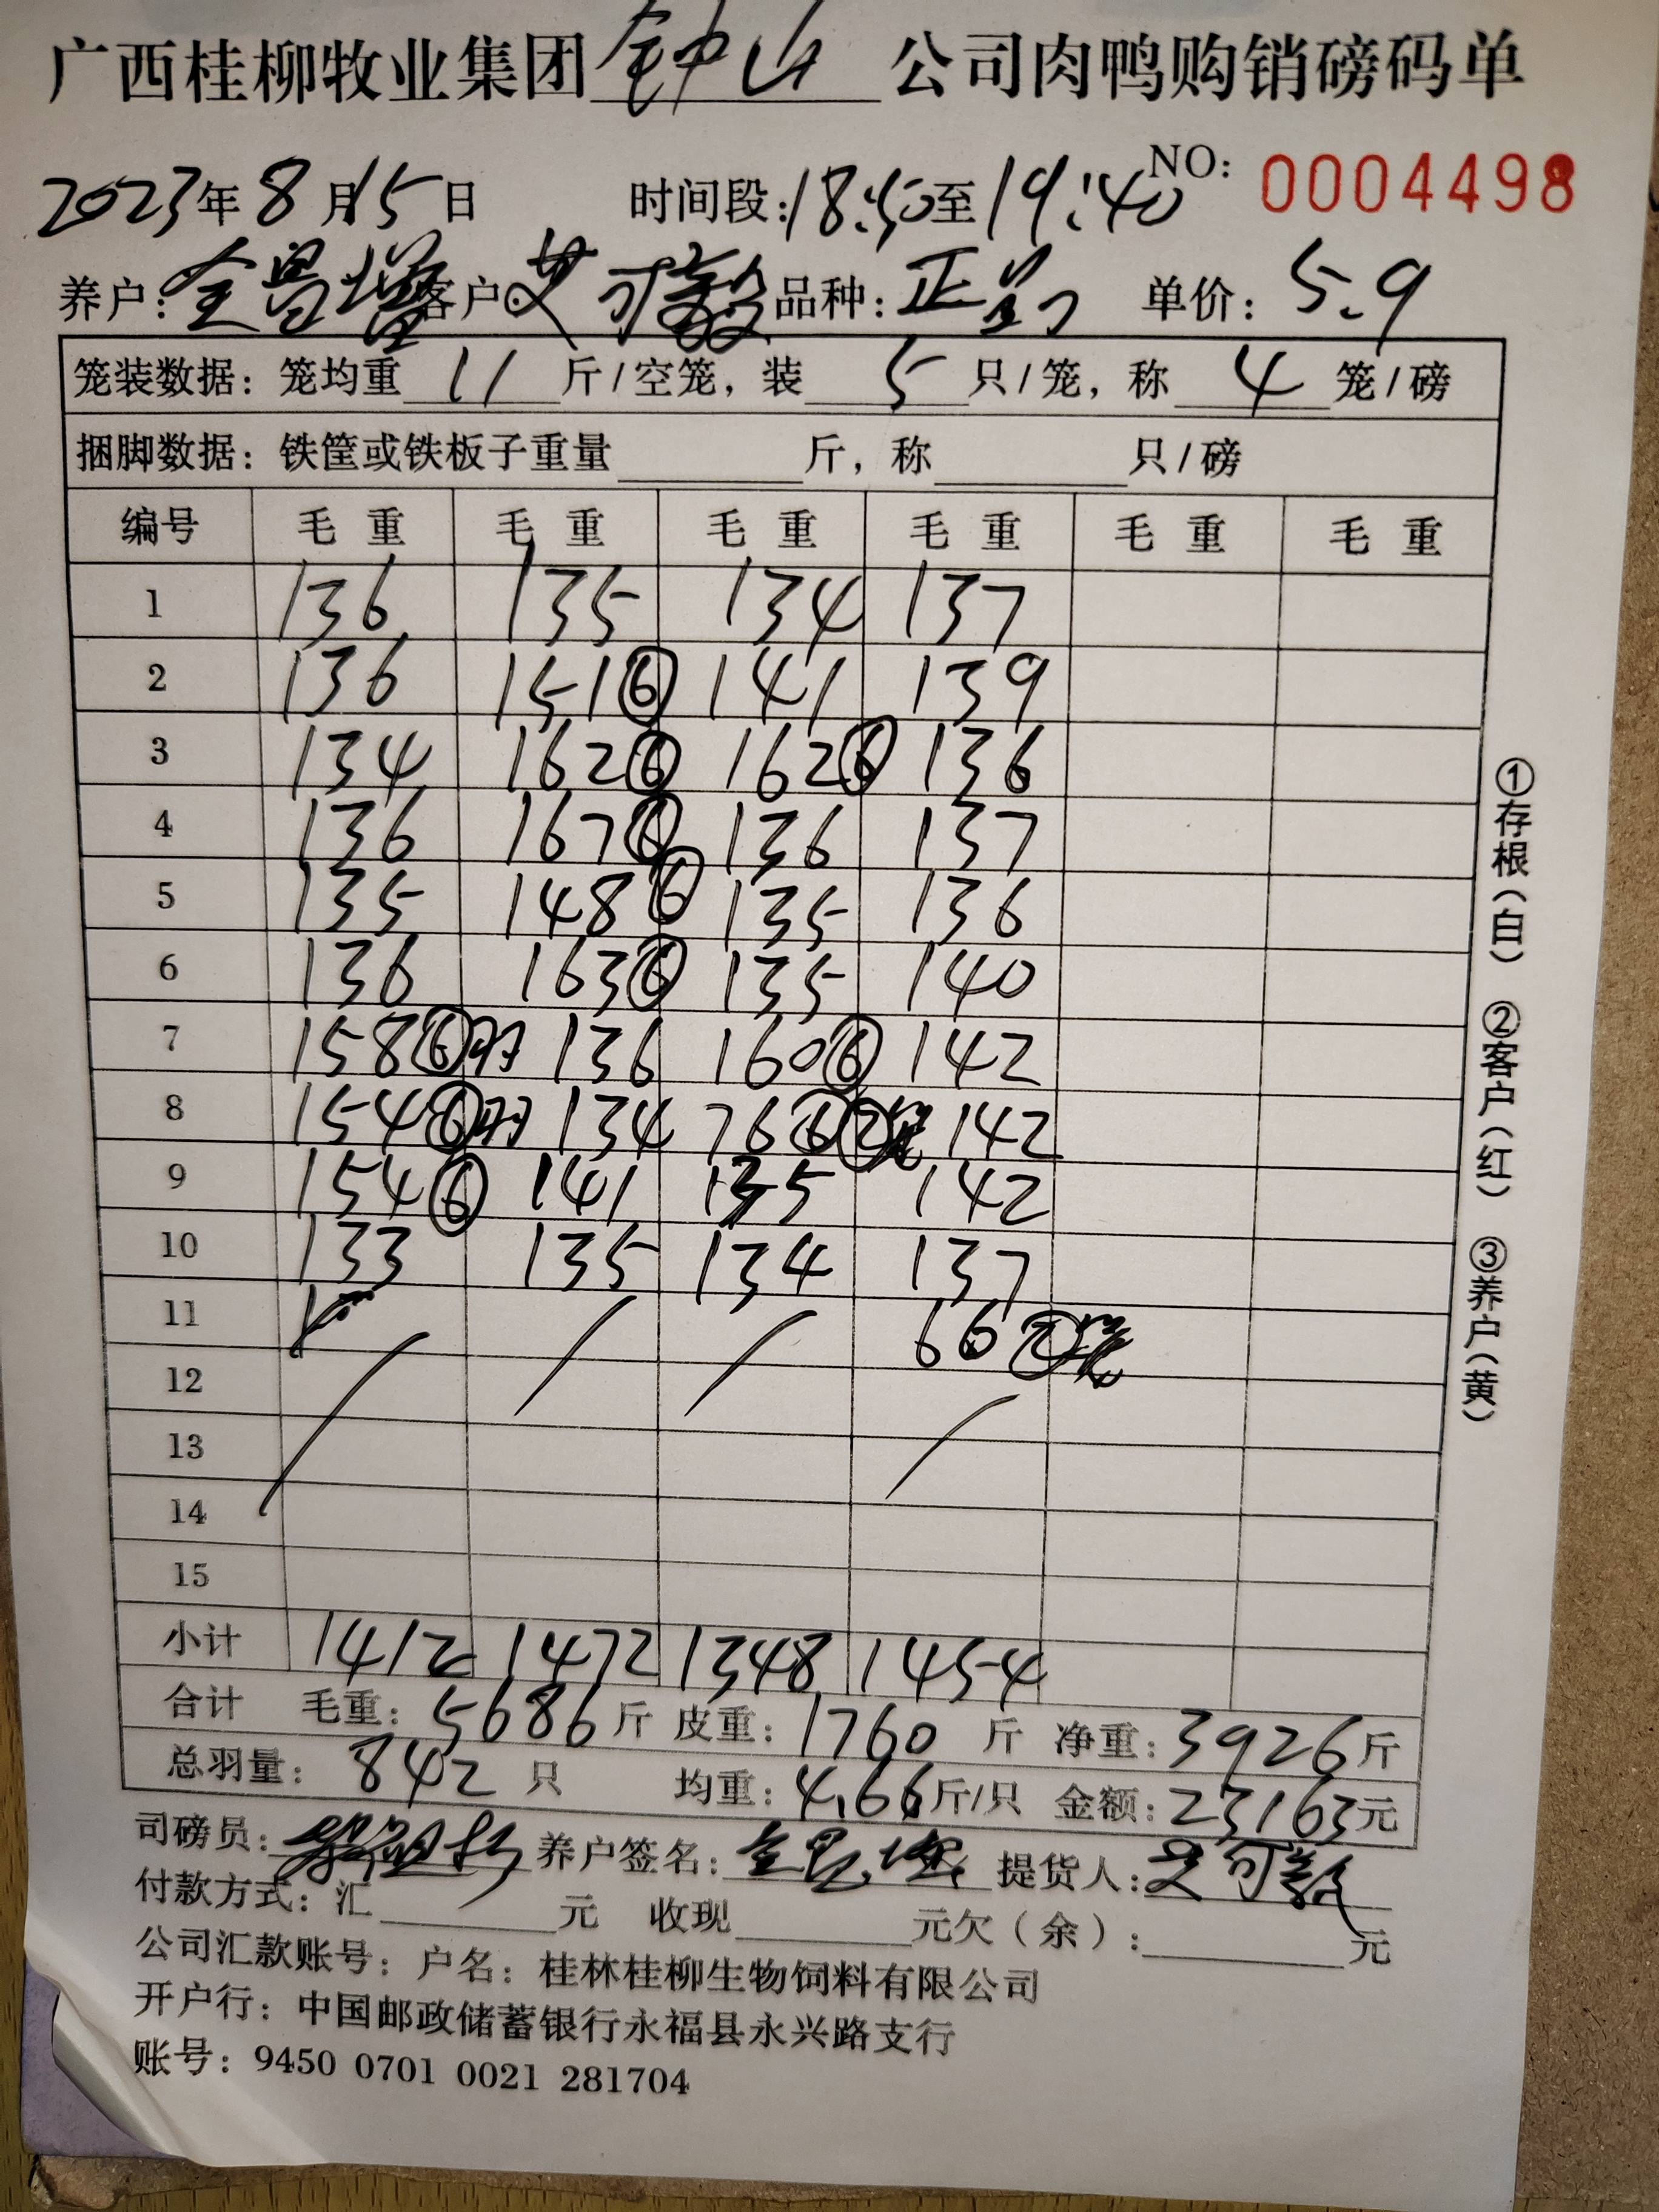 广西桂柳牧业集团钟山公司肉鸭购销磅码单
NO: 0004498
2023年8月15日 时间段:18:50至19:40
养户:全昌增 客户:艾可毅 品种: 单价:5.9
笼装数据:笼均重11斤/空笼,装5只/笼,称4笼/磅
捆脚数据:铁筐或铁板子重量 斤,称 只/磅
编号 毛重 毛重 毛重 毛重 毛重 毛重
1 136 135 134 137
2 136 151⑥ 141 139
3 134 162⑥ 162⑥ 136
4 136 167⑥ 136 137
5 135 148⑥ 135 136
6 136 163⑥ 135 140
7 158⑥ 136 160⑥ 142
8 154⑥ 134 76⑥②笼 142
9 154⑥ 141 135 142
10 133 135 134 137
11 66②笼
12
13
14
15
小计 1412 1472 1348 1454
合计 毛重:5686斤 皮重:1760斤 净重:3926斤
总羽量:842只 均重:4.66斤/只 金额:23163元
司磅员: 养户签名:全昌增 提货人:艾可毅
付款方式:汇 元 收现 元欠(余): 元
公司汇款账号:户名:桂林桂柳生物饲料有限公司
开户行:中国邮政储蓄银行永福县永兴路支行
账号:9450 0701 0021 281704
①存根(白) ②客户(红) ③养户(黄)